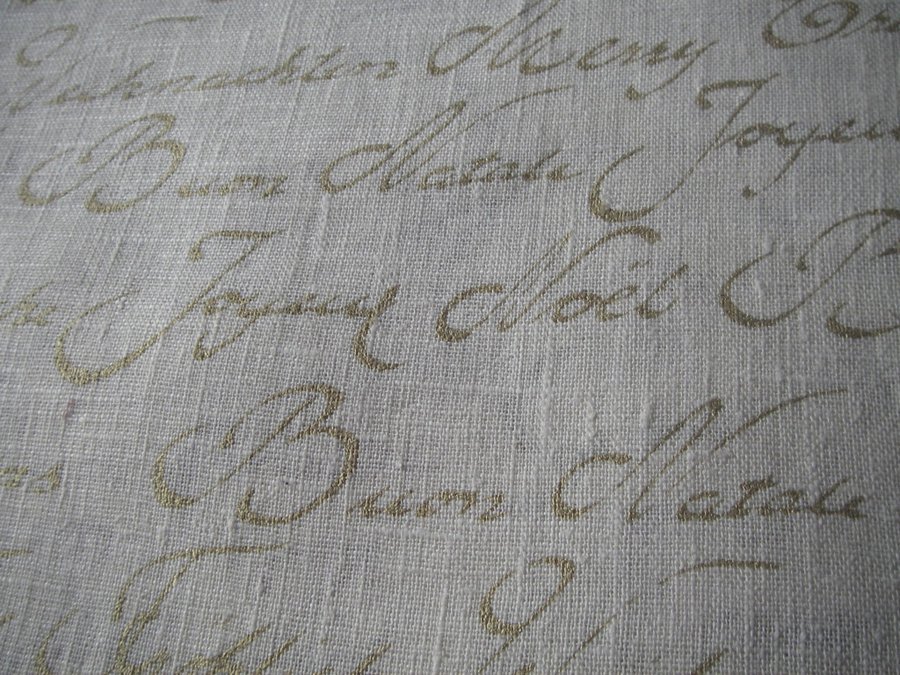 Weihnachten Merry
Buon Natale Joyeu
Joyeux Noël B
Buon Natale